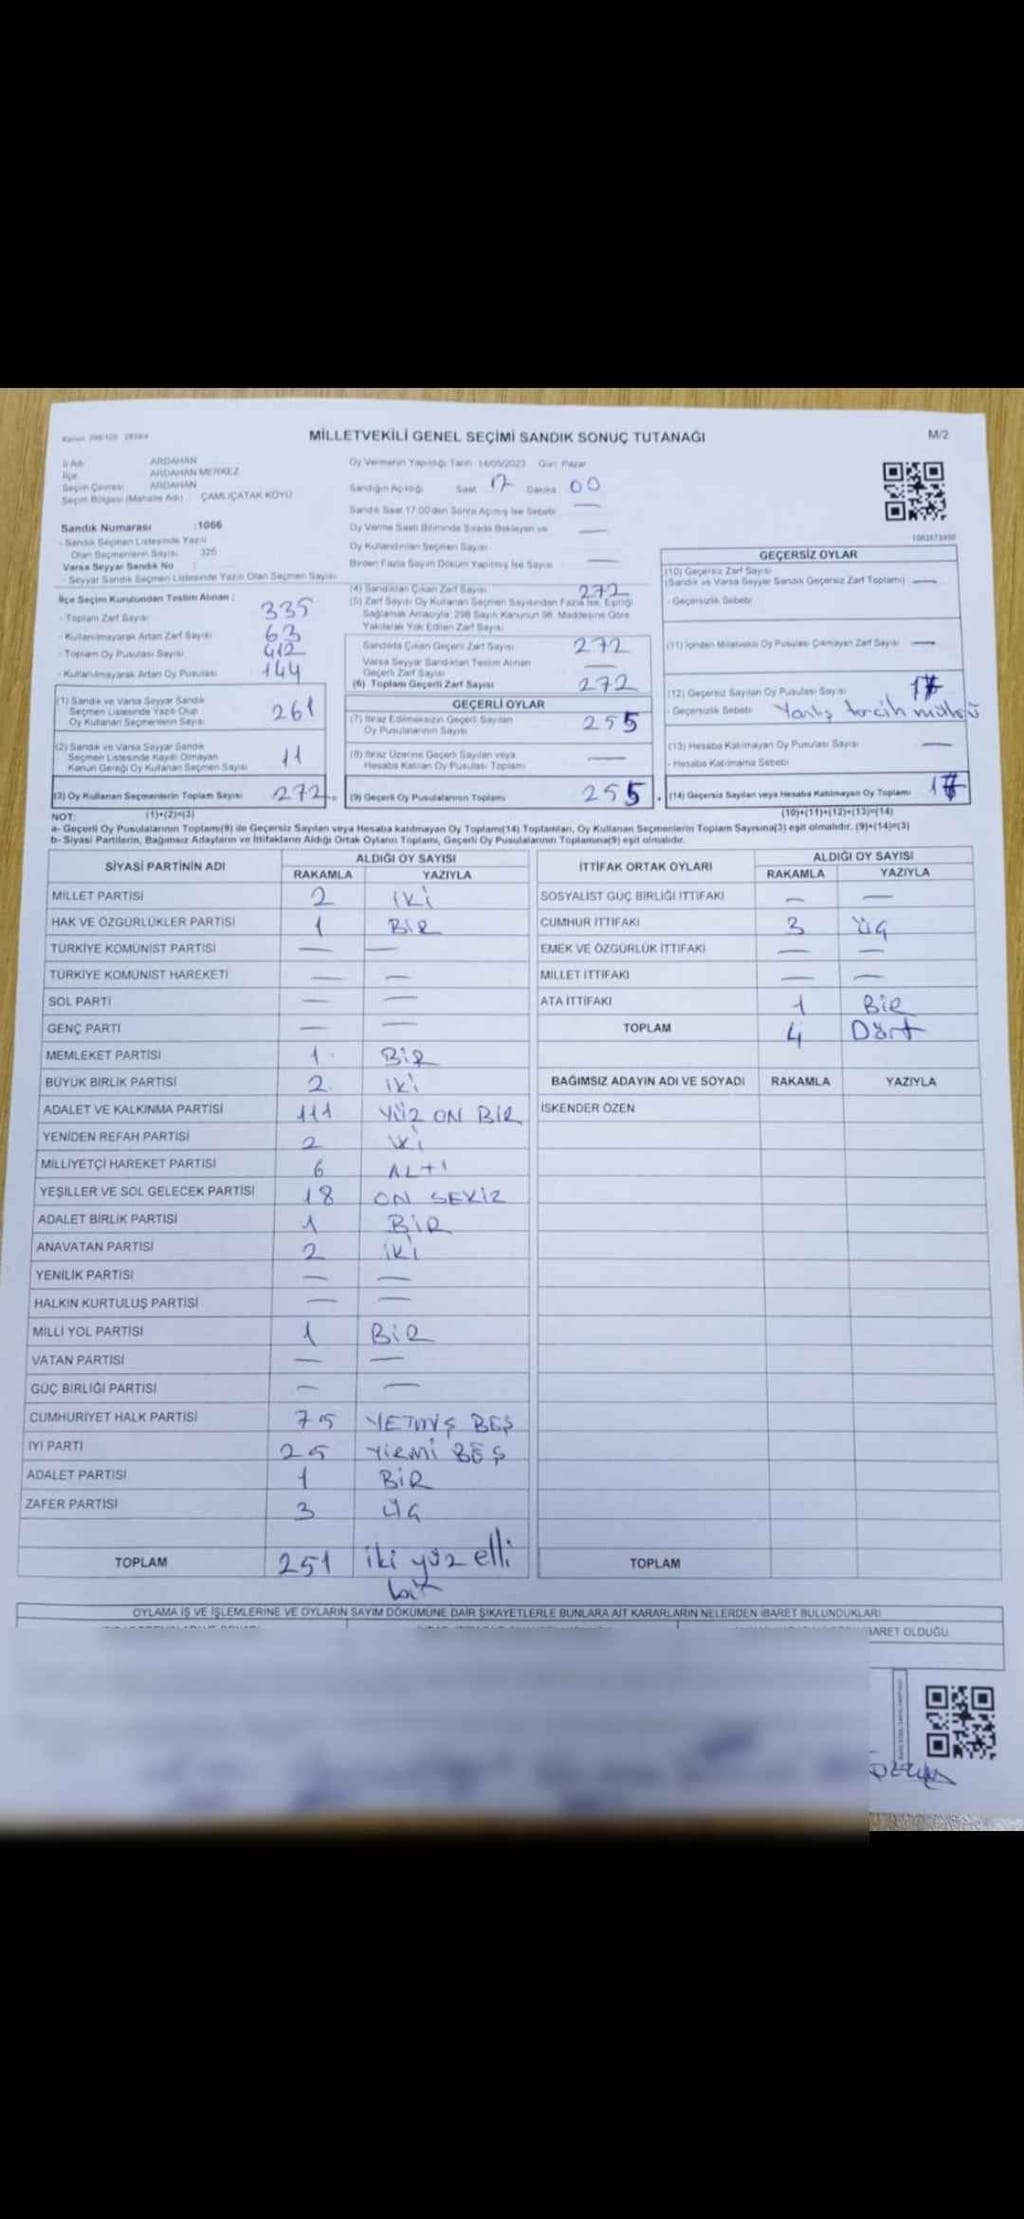 Kanun 298/105 2839/4
MİLLETVEKİLİ GENEL SEÇİMİ SANDIK SONUÇ TUTANAĞI
M/2
İl Adı : ARDAHAN
İlçe : ARDAHAN MERKEZ
Seçim Çevresi : ARDAHAN
Seçim Bölgesi (Mahalle Adı) : ÇAMLIÇATAK KÖYÜ
Sandık Numarası :1066
- Sandık Seçmen Listesinde Yazılı
Olan Seçmenlerin Sayısı : 325
Varsa Seyyar Sandık No :
- Seyyar Sandık Seçmen Listesinde Yazılı Olan Seçmen Sayısı
İlçe Seçim Kurulundan Teslim Alınan ;
- Toplam Zarf Sayısı 335
- Kullanılmayarak Artan Zarf Sayısı 63
- Toplam Oy Pusulası Sayısı 412
- Kullanılmayarak Artan Oy Pusulası 144
(1) Sandık ve Varsa Seyyar Sandık
Seçmen Listesinde Yazılı Olup
Oy Kullanan Seçmenlerin Sayısı 261
(2) Sandık ve Varsa Seyyar Sandık
Seçmen Listesinde Kaydı Olmayan
Kanun Gereği Oy Kullanan Seçmen Sayısı 11
(3) Oy Kullanan Seçmenlerin Toplam Sayısı 272
Oy Vermenin Yapıldığı Tarih: 14/05/2023 Gün: Pazar
Sandığın Açıldığı Saat 17 Dakika 00
Sandık Saat 17:00'den Sonra Açılmış İse Sebebi —
Oy Verme Saati Bitiminde Sırada Bekleyen ve —
Oy Kullandırılan Seçmen Sayısı
Birden Fazla Sayım Döküm Yapılmış İse Sayısı —
(4) Sandıktan Çıkan Zarf Sayısı 272
(5) Zarf Sayısı Oy Kullanan Seçmen Sayısından Fazla İse, Eşitliği
Sağlamak Amacıyla; 298 Sayılı Kanunun 98. Maddesine Göre
Yakılarak Yok Edilen Zarf Sayısı
Sandıkta Çıkan Geçerli Zarf Sayısı 272
Varsa Seyyar Sandıktan Teslim Alınan
Geçerli Zarf Sayısı —
(6) Toplam Geçerli Zarf Sayısı 272
GEÇERLİ OYLAR
(7) İtiraz Edilmeksizin Geçerli Sayılan
Oy Pusulalarının Sayısı 255
(8) İtiraz Üzerine Geçerli Sayılan veya
Hesaba Katılan Oy Pusulası Toplamı —
(9) Geçerli Oy Pusulalarının Toplamı 255
1063673950
GEÇERSİZ OYLAR
(10) Geçersiz Zarf Sayısı
(Sandık ve Varsa Seyyar Sandık Geçersiz Zarf Toplamı) —
- Geçersizlik Sebebi
(11) İçinden Milletvekili Oy Pusulası Çıkmayan Zarf Sayısı —
(12) Geçersiz Sayılan Oy Pusulası Sayısı 17
- Geçersizlik Sebebi Yanlış tercih mührü
(13) Hesaba Katılmayan Oy Pusulası Sayısı —
- Hesaba Katılmama Sebebi
(14) Geçersiz Sayılan veya Hesaba Katılmayan Oy Toplamı 17
NOT: (1)+(2)=(3) (10)+(11)+(12)+(13)=(14)
a- Geçerli Oy Pusulalarının Toplamı(9) ile Geçersiz Sayılan veya Hesaba katılmayan Oy Toplamı(14) Toplamları, Oy Kullanan Seçmenlerin Toplam Sayısına(3) eşit olmalıdır. (9)+(14)=(3)
b- Siyasi Partilerin, Bağımsız Adayların ve İttifakların Aldığı Oyların Toplamı, Geçerli Oy Pusulalarının Toplamına(9) eşit olmalıdır.
SİYASİ PARTİNİN ADI ALDIĞI OY SAYISI
RAKAMLA YAZIYLA
MİLLET PARTİSİ 2 iki
HAK VE ÖZGÜRLÜKLER PARTİSİ 1 BİR
TÜRKİYE KOMÜNİST PARTİSİ — —
TÜRKİYE KOMÜNİST HAREKETİ — —
SOL PARTİ — —
GENÇ PARTİ — —
MEMLEKET PARTİSİ 1 BİR
BÜYÜK BİRLİK PARTİSİ 2 iki
ADALET VE KALKINMA PARTİSİ 111 YÜZ ON BİR
YENİDEN REFAH PARTİSİ 2 iki
MİLLİYETÇİ HAREKET PARTİSİ 6 ALTI
YEŞİLLER VE SOL GELECEK PARTİSİ 18 ON SEKİZ
ADALET BİRLİK PARTİSİ 1 BİR
ANAVATAN PARTİSİ 2 iki
YENİLİK PARTİSİ — —
HALKIN KURTULUŞ PARTİSİ — —
MİLLİ YOL PARTİSİ 1 BİR
VATAN PARTİSİ — —
GÜÇ BİRLİĞİ PARTİSİ — —
CUMHURİYET HALK PARTİSİ 75 YETMİŞ BEŞ
İYİ PARTİ 25 YİRMİ BEŞ
ADALET PARTİSİ 1 BİR
ZAFER PARTİSİ 3 ÜÇ
TOPLAM 251 iki yüz elli
bir
İTTİFAK ORTAK OYLARI ALDIĞI OY SAYISI
RAKAMLA YAZIYLA
SOSYALİST GÜÇ BİRLİĞİ İTTİFAKI — —
CUMHUR İTTİFAKI 3 üç
EMEK VE ÖZGÜRLÜK İTTİFAKI — —
MİLLET İTTİFAKI — —
ATA İTTİFAKI 1 BİR
TOPLAM 4 Dört
BAĞIMSIZ ADAYIN ADI VE SOYADI RAKAMLA YAZIYLA
İSKENDER ÖZEN
TOPLAM
OYLAMA İŞ VE İŞLEMLERİNE VE OYLARIN SAYIM DÖKÜMÜNE DAİR ŞİKAYETLERLE BUNLARA AİT KARARLARIN NELERDEN İBARET BULUNDUKLARI
İBARET OLDUĞU